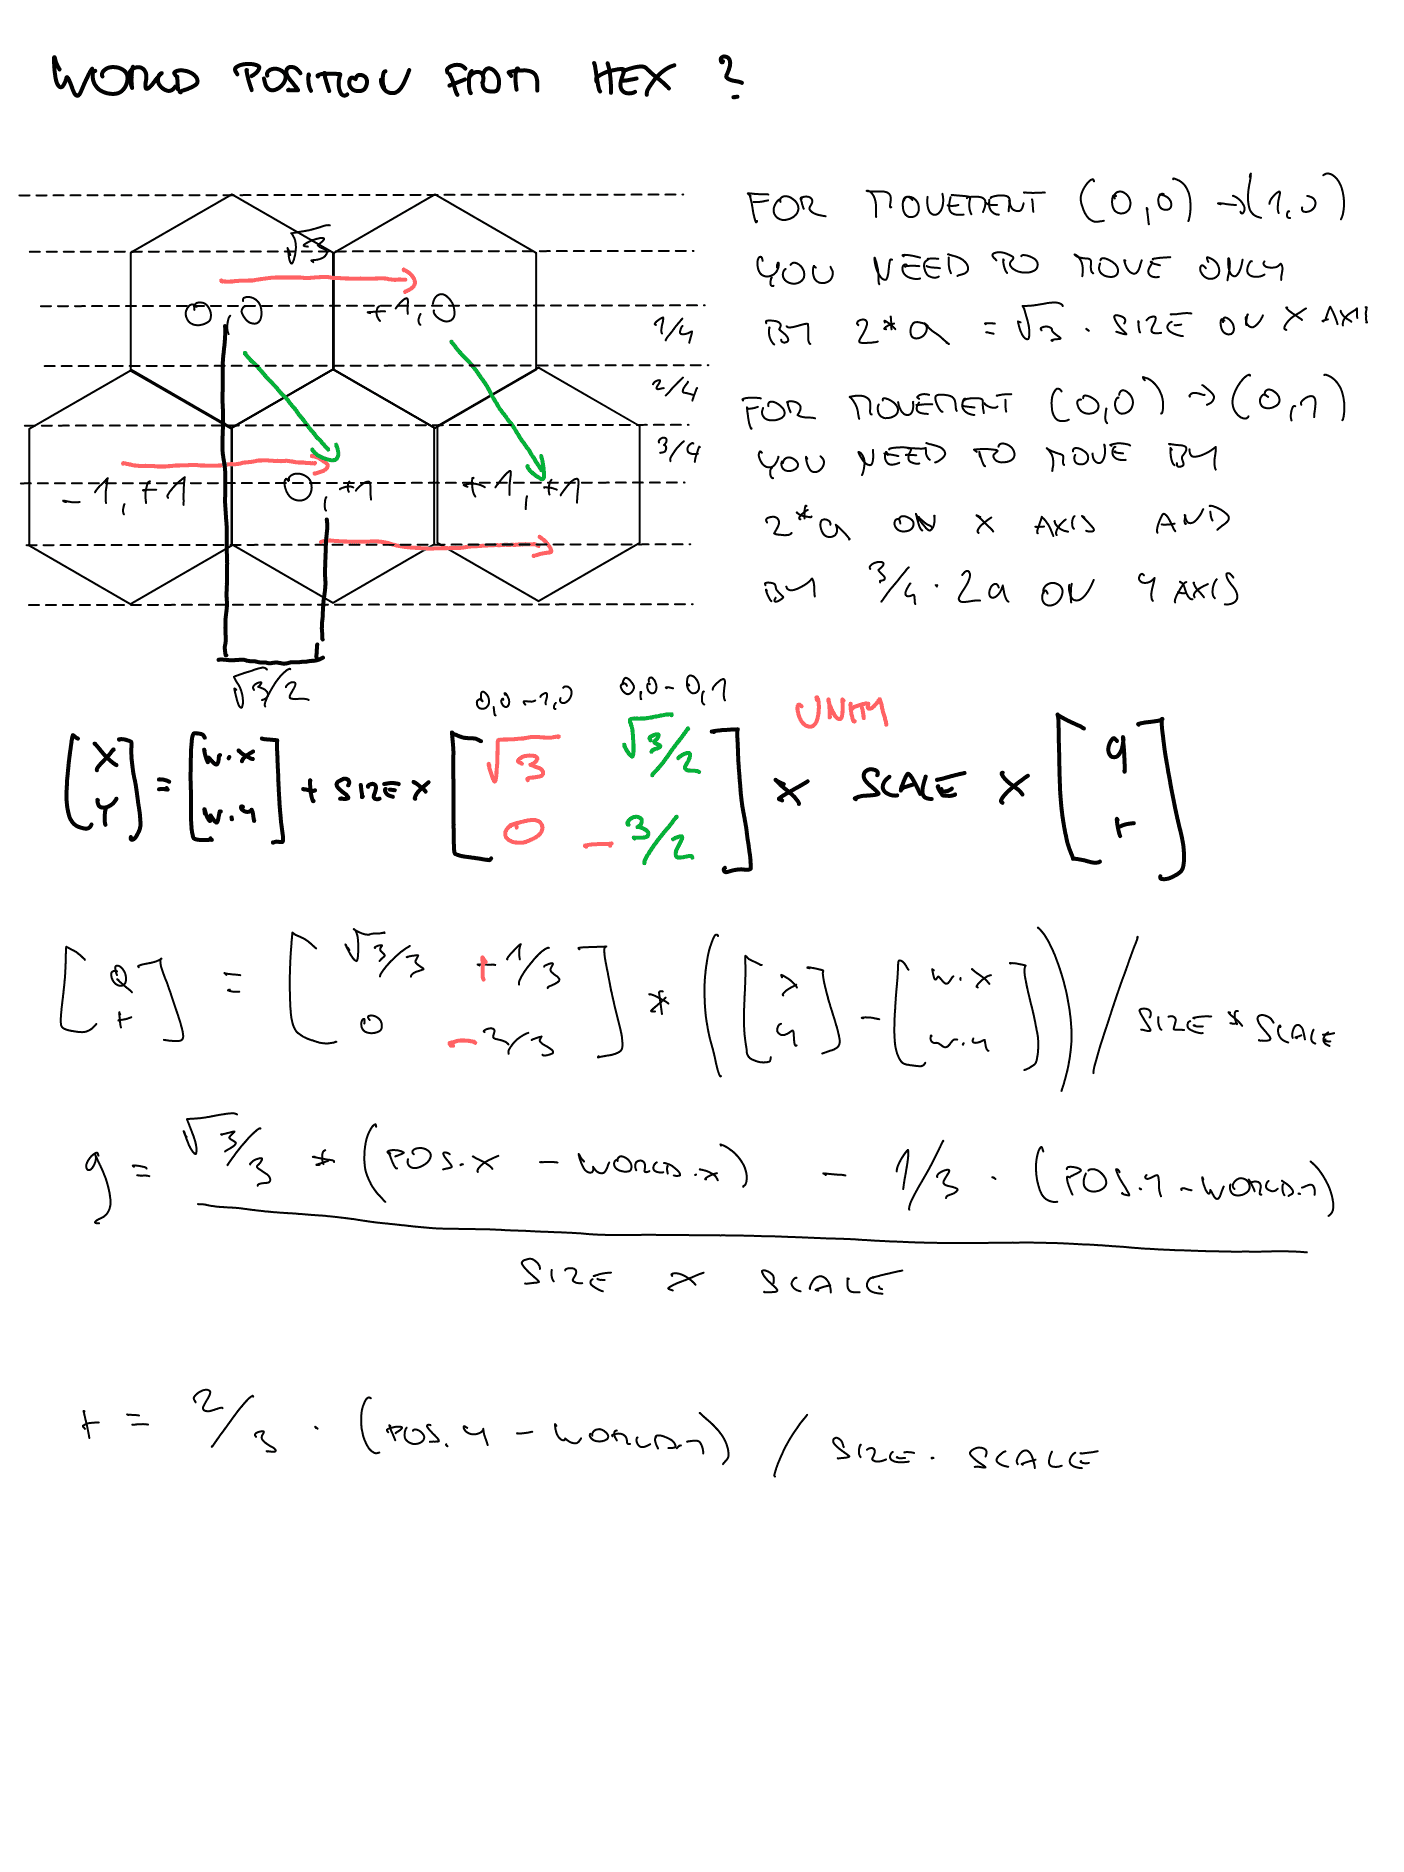 WORLD POSITION FROM HEX ?
√3
0,0 +1,0
1/4
2/4
3/4
-1,+1 0,+1 +1,+1
√3/2
FOR MOVEMENT (0,0) → (1,0)
YOU NEED TO MOVE ONLY
BY 2*a = √3 . SIZE ON X AXIS
FOR MOVEMENT (0,0) → (0,1)
YOU NEED TO MOVE BY
2*a ON X AXIS AND
BY 3/4 · 2a ON Y AXIS
0,0-1,0 0,0-0,1 UNITY
[X Y] = [W.X W.Y] + SIZE × [√3 √3/2 0 -3/2] × SCALE × [q r]
[Q r] = [√3/3 +1/3 0 -2/3] * ([X Y] - [W.X W.Y]) / SIZE * SCALE
q = √3/3 * (POS.X - WORLD.X) - 1/3 · (POS.Y - WORLD.Y)
SIZE × SCALE
r = 2/3 · (POS.Y - WORLD.Y) / SIZE · SCALE